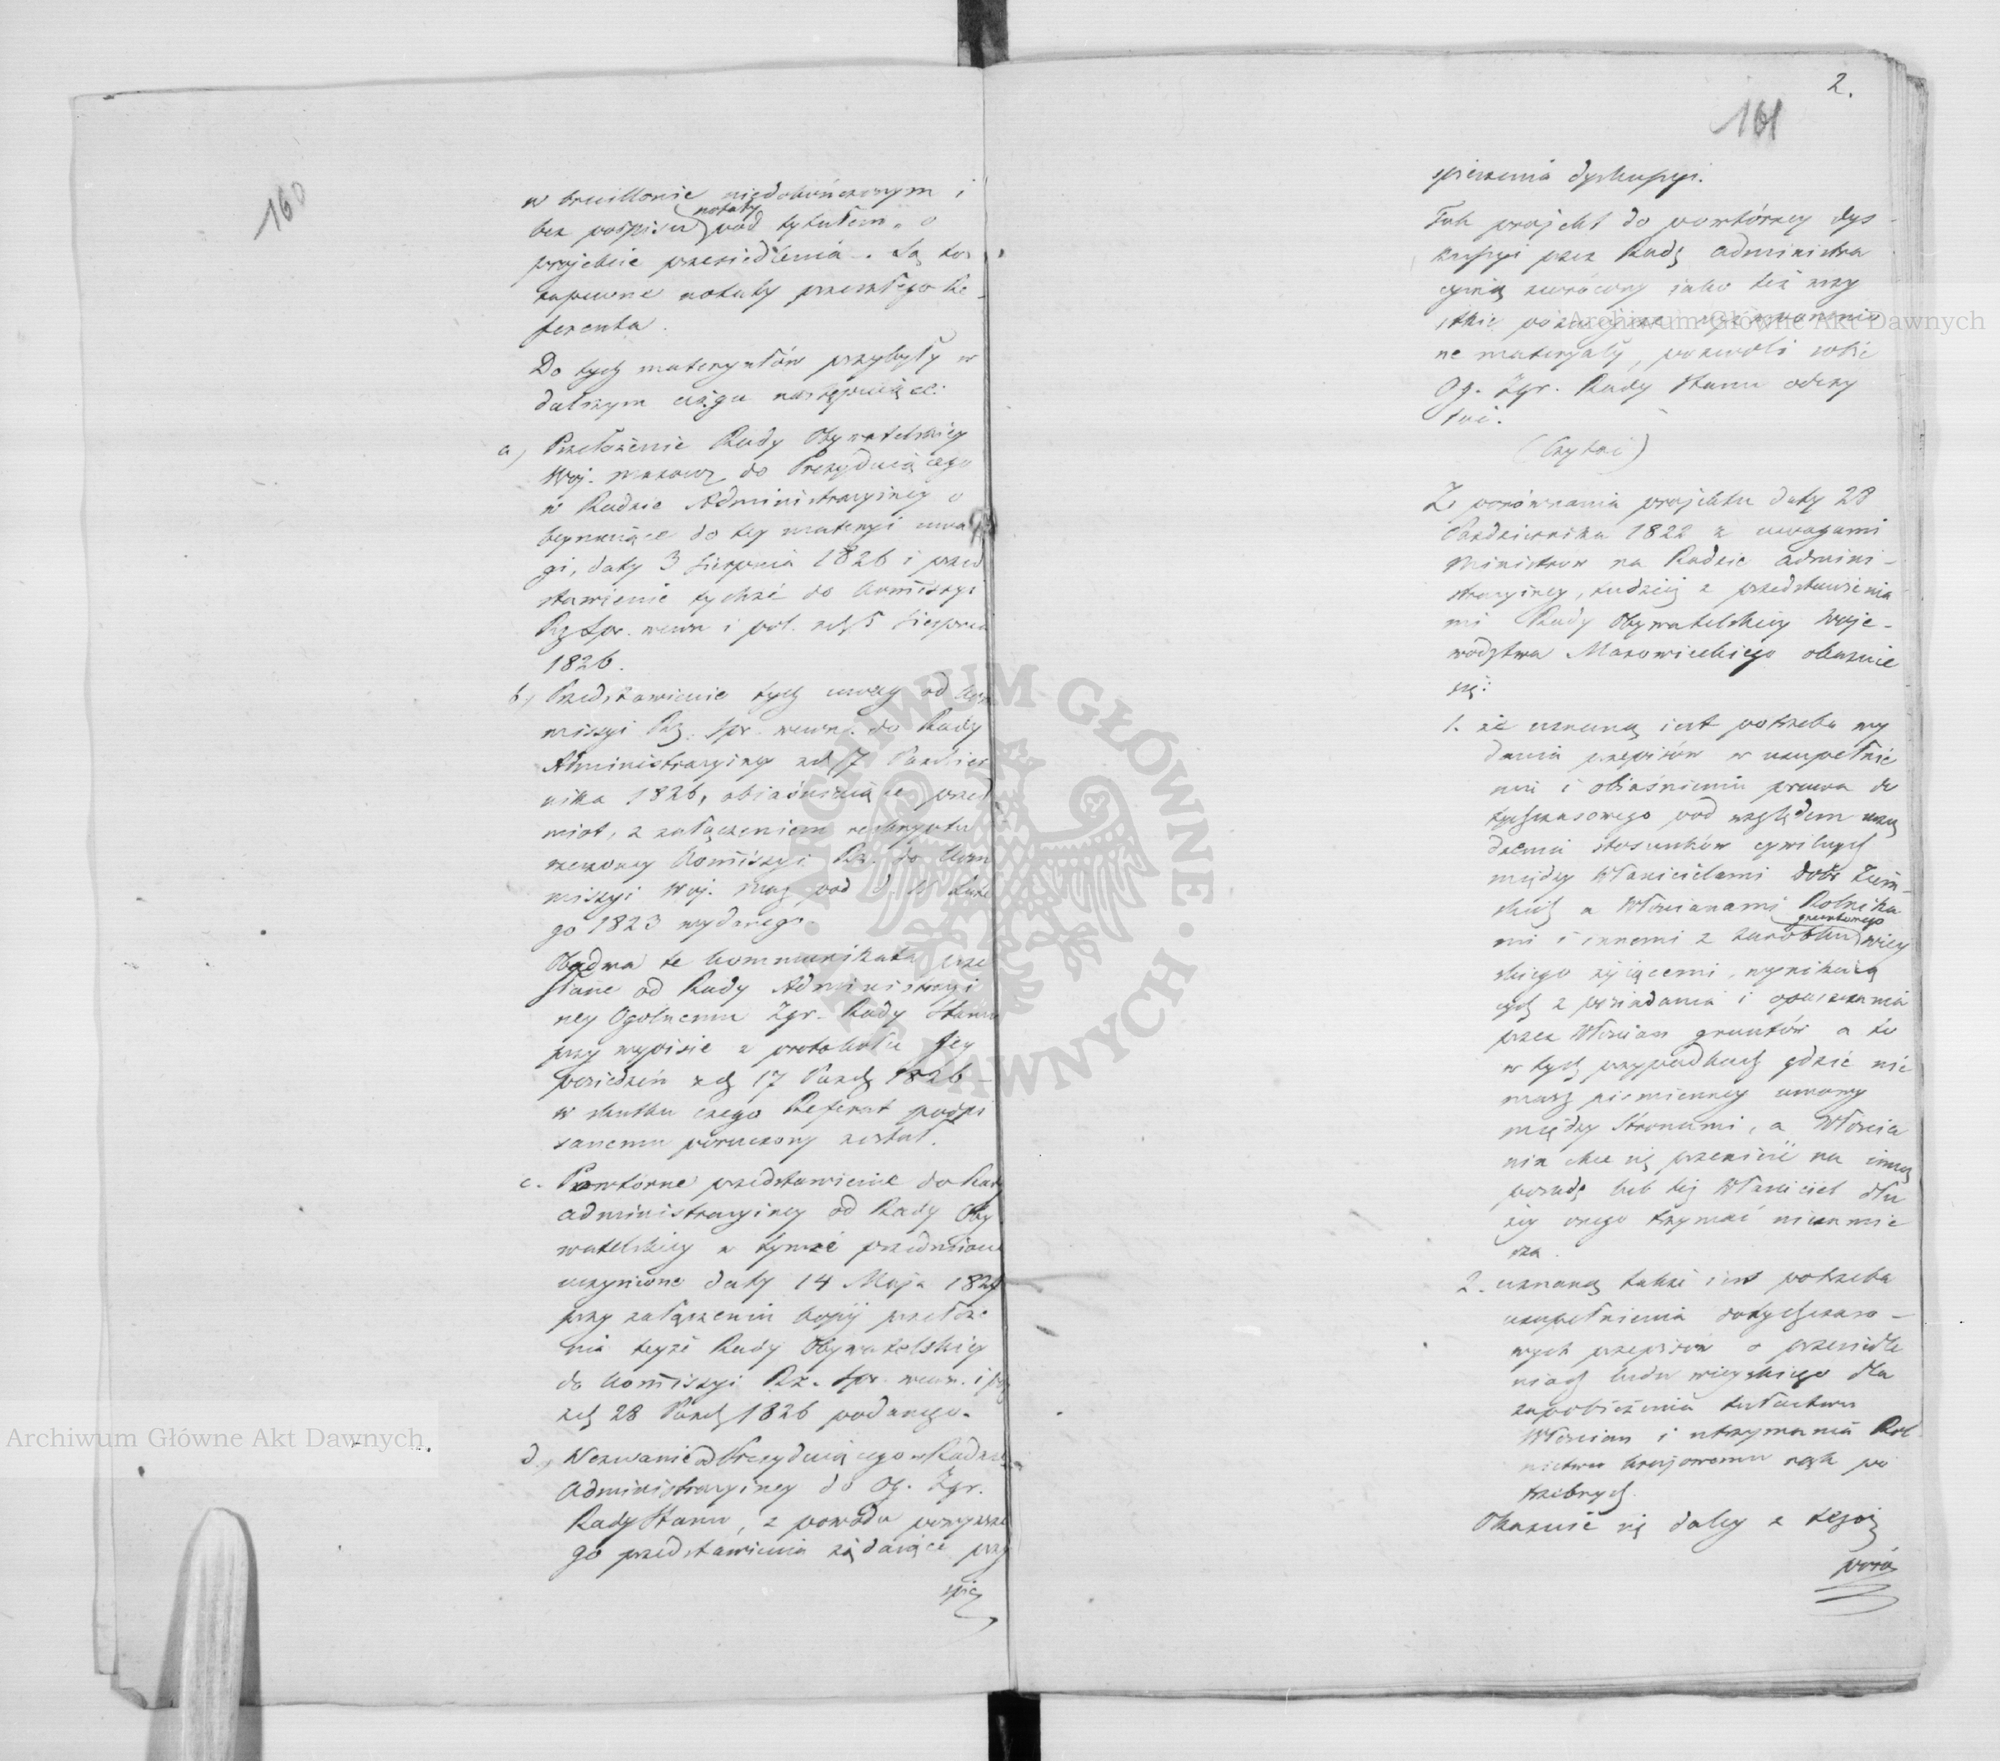 160
w bruillonie niedokończonym i
bez podpisu notaty pod tytułem „o
projekcie przesiedlenia". Są to
zapewne notaty przeszłego Re-
ferenta.
Do tych materyałów przybyły w
dalszym ciągu następujące:
a) Przełożenie Rady Obywatelskiey
Woj. Mazow. do Prezydującego
w Radzie Administracyiney o
beymujące do tey materyi uwa
gi, daty 3 Sierpnia 1826 i przed
stawienie tychże do Kommissyi
Rz. Spr. wewn i pol. z d. 5 Sierpnia
1826.
b) Przedstawienie tych uwag od Kom
missyi Rz. Spr. wewn. do Rady
Administracyiney z d. 7 Paździer
nika 1826, obiaśniaiące przed
miot, z załączeniem reskryptu
rzeczoney Kommissyi Rz. do Kom
missyi Woj. Maz pod d. Lute
go 1823 wydanego.
Obadwa te kommunikata prze
słane od Rady Administracyi
ney Ogólnemu Zgr. Rady Stanu
przy wypisie z protokołu Jey
posiedzeń z d. 17 Paźd. 1826 –
w skutku czego Referat podpi
sanemu poruczony został.
c. Powtórne przedstawienie do Rady
administracyiney od Rady Oby
watelskiey w tymże przedmiocie
uczynione daty 14 Maja 1827
przy załączeniu kopij przełoże
nia teyże Rady Obywatelskiey
do Kommissyi Rz. Spr. wewn. i p
z d. 28 Paźd. 1826 podanego.
d. Wezwanie od Prezydującego w Radzie
Administracyiney do Og. Zgr.
Rady Stanu, z powodu powyższe
go przedstawienia żądaiące przy
spie
2.
161
spieszenia dyskussyi.
Tak projekt do powtórney dys-
kussyi przez Radę administra
cyiną zwrócony jako też wszy
stkie późniejsze
ne materyały, pozwoli sobie
Og. Zgr. Rady Stanu odczy
tać.
(Czytać)
Z porównania projektu daty 28
Października 1822 z uwagami
Ministrów na Radzie admini-
stracyiney, tudzież z przedstawienia
mi Rady Obywatelskiey Woje-
wództwa Mazowieckiego okazuie
się:
1. że uznaną iest potrzeba wy
dania przepisów w uzupełnie
niu i obiaśnieniu prawa do
tychczasowego pod względem urzą
dzenia stosunków cywilnych
między Właścicielami dóbr Ziem-
skich a Włościanami Rolnika
mi i innemi z zarobku gruntowego wiey
skiego żyiącemi, wynikaią
cych z posiadania i opuszczania
przez Włościan gruntów a to
w tych przypadkach gdzie nie
masz piśmienney umowy
między Stronami, a Włościa
nin chce się przenieść na inną
posadę lub też Właściciel dłu
żey onego trzymać niezamie
rza.
2. uznaną także iest potrzeba
uzupełnienia dotychczaso-
wych przepisów o przesiedle
niach ludu wieyskiego dla
zapobieżenia tułactwu
Włościan i utrzymania Rol
nictwu krajowemu rąk po
trzebnych.
Okazuie się daley z tegoż
poró
Archiwum Główne Akt Dawnych
Archiwum Główne Akt Dawnych
ARCHIWUM GŁÓWNE AKT DAWNYCH